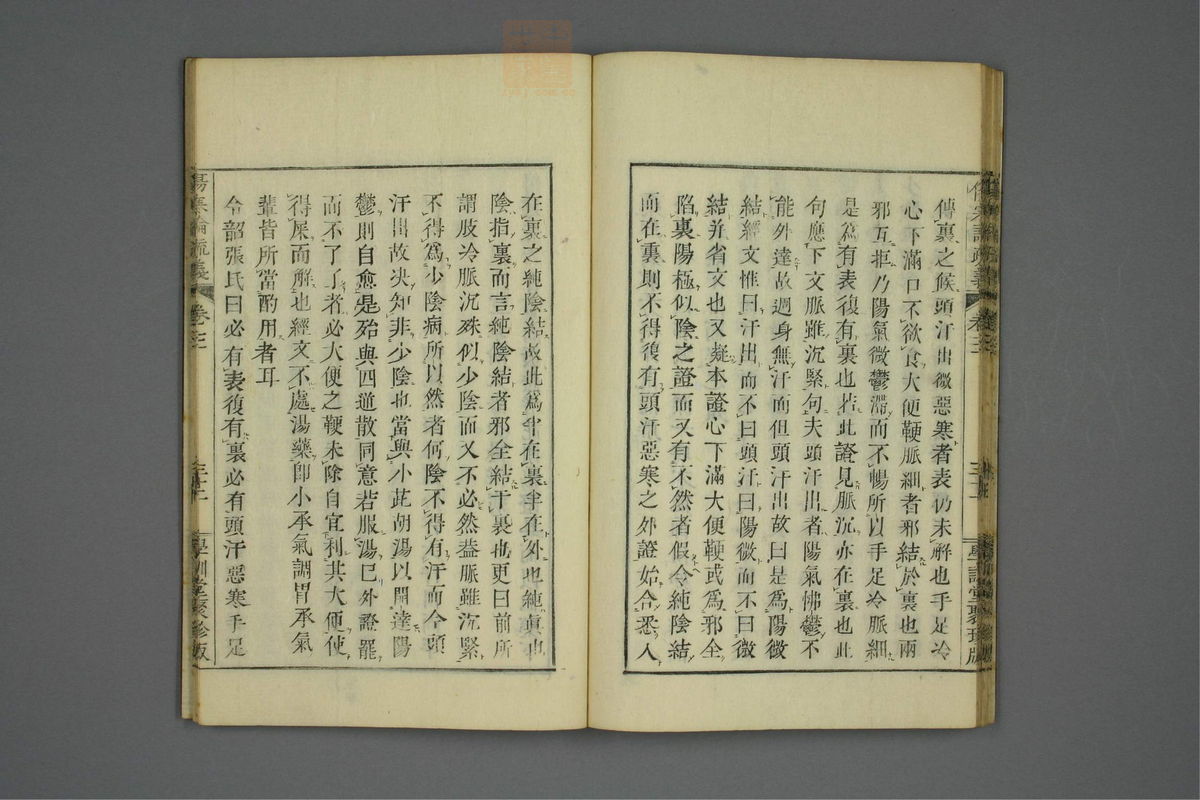 傳裏之候頭汗出微惡寒者表仍未解也手足冷
心下滿口不欲食大便鞕脈細者邪結於裏也兩
邪互拒乃陽氣微鬱滯而不暢所以手足冷脈細
是爲有表復有裏也若此證見脈沉亦在裏也此
句應下文脈雖沉緊句夫頭汗出者陽氣怫鬱不
能外達故週身無汗而但頭汗出故曰是爲陽微
結經文惟曰汗出而不曰頭汗曰陽微而不曰微
結并省文也又疑本證心下滿大便鞕或爲邪全
陷裏陽極似陰之證而又有不然者假令純陰結
而在裏則不得復有頭汗惡寒之外證始合悉入
在裏之純陰結故此爲半在裏半在外也純眞也
陰指裏而言純陰結者邪全結于裏也更曰前所
謂肢冷脈沉殊似少陰而又不必然蓋脈雖沉緊
不得爲少陰病所以然者何陰不得有汗而今頭
汗出故決知非少陰也當與小茈胡湯以開達陽
鬱則自愈是殆與四逆散同意若服湯已外證罷
而不了了者必大便之鞕未除自宜利其大便使
得屎而解也經文不處湯藥卽小承氣調胃承氣
輩皆所當酌用者耳
令韶張氏曰必有表復有裏必有頭汗惡寒手足
傷寒論疏義
卷三
三十二
學訓堂聚珍版